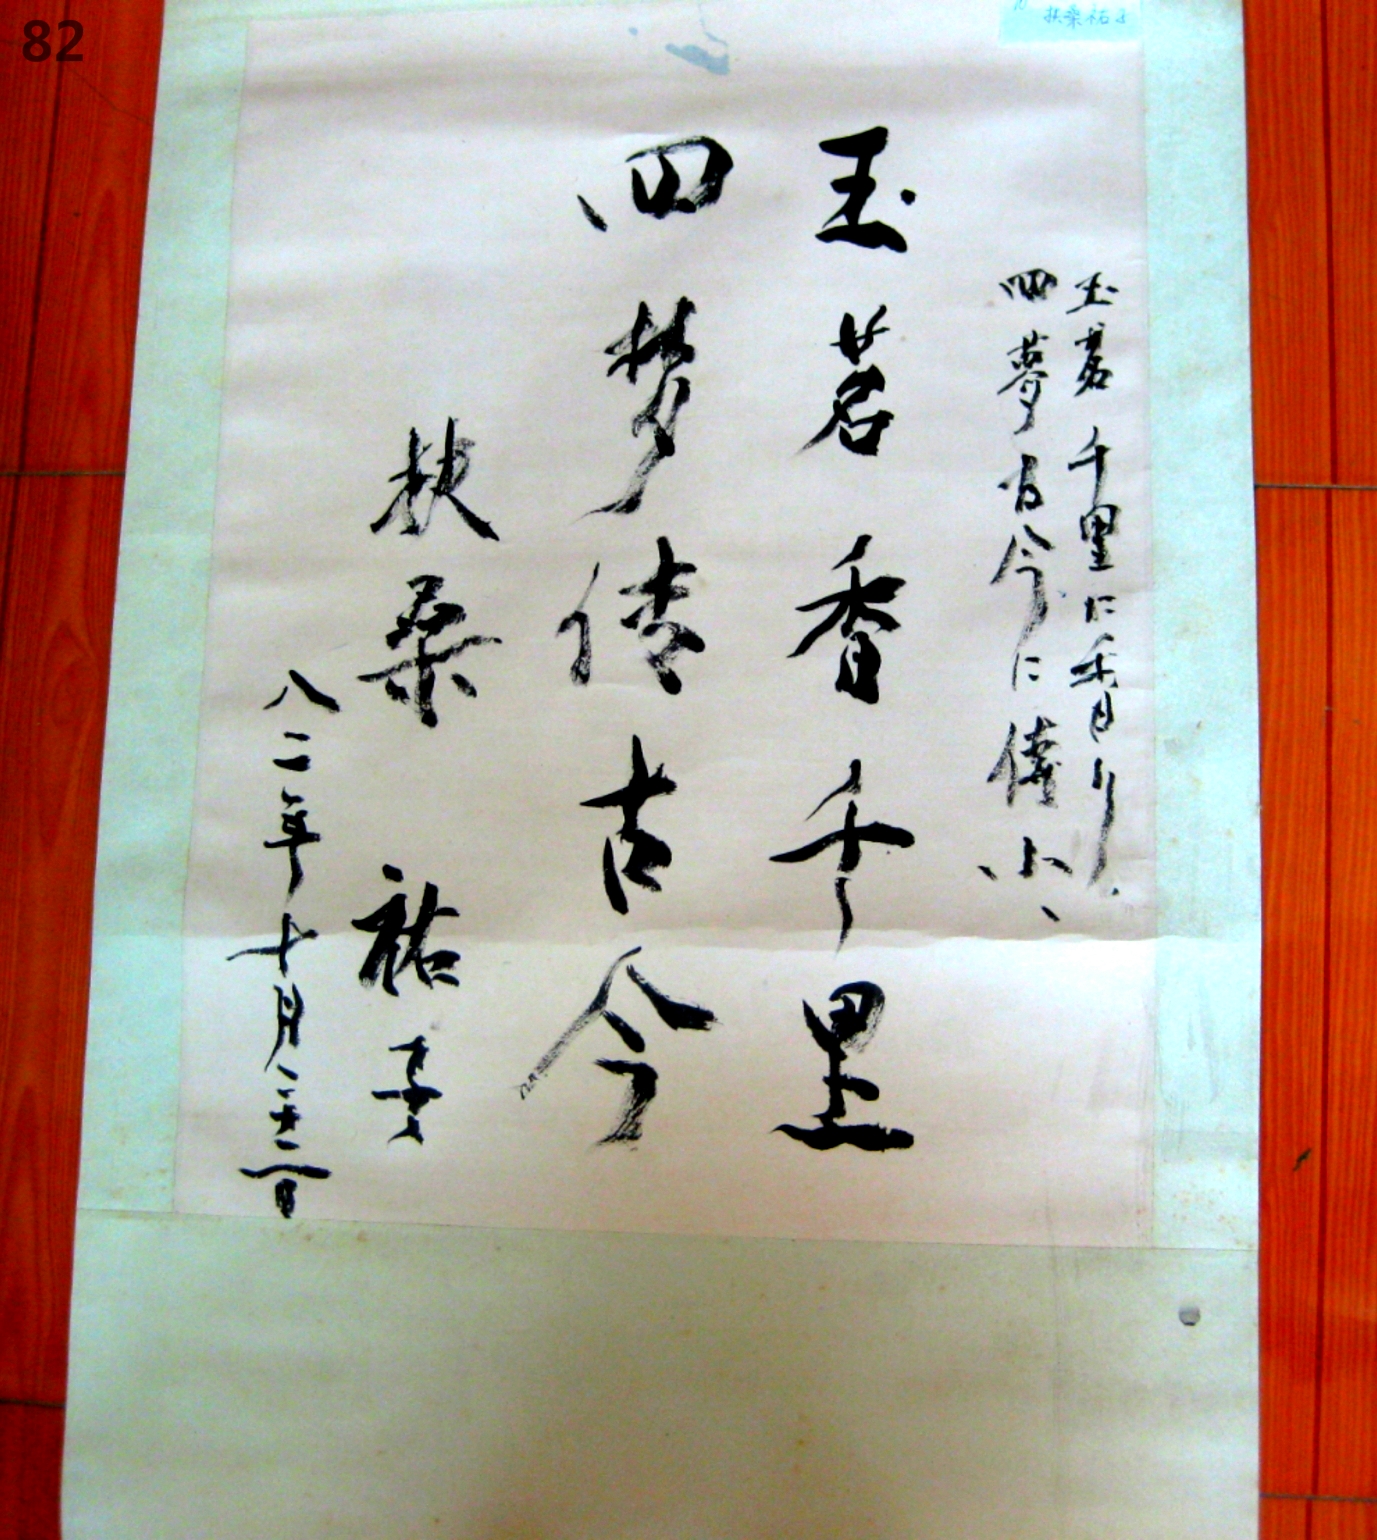 82
扶桑祐子
玉茗千里に香り
四夢古今に傳わる
玉茗香千里
四梦传古今
扶桑 祐子
八二年十月二十二日